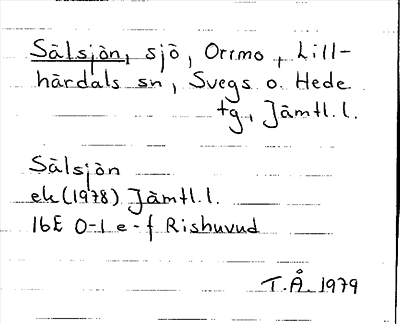 Sälsjön, sjö, Orrmo, Lill-
härdals sn, Svegs o. Hede
tg., Jämtl.l.
Sälsjön
ek (1978) Jämtl.l.
16E 0-1 e-f Rishuvud
T.Å. 1979